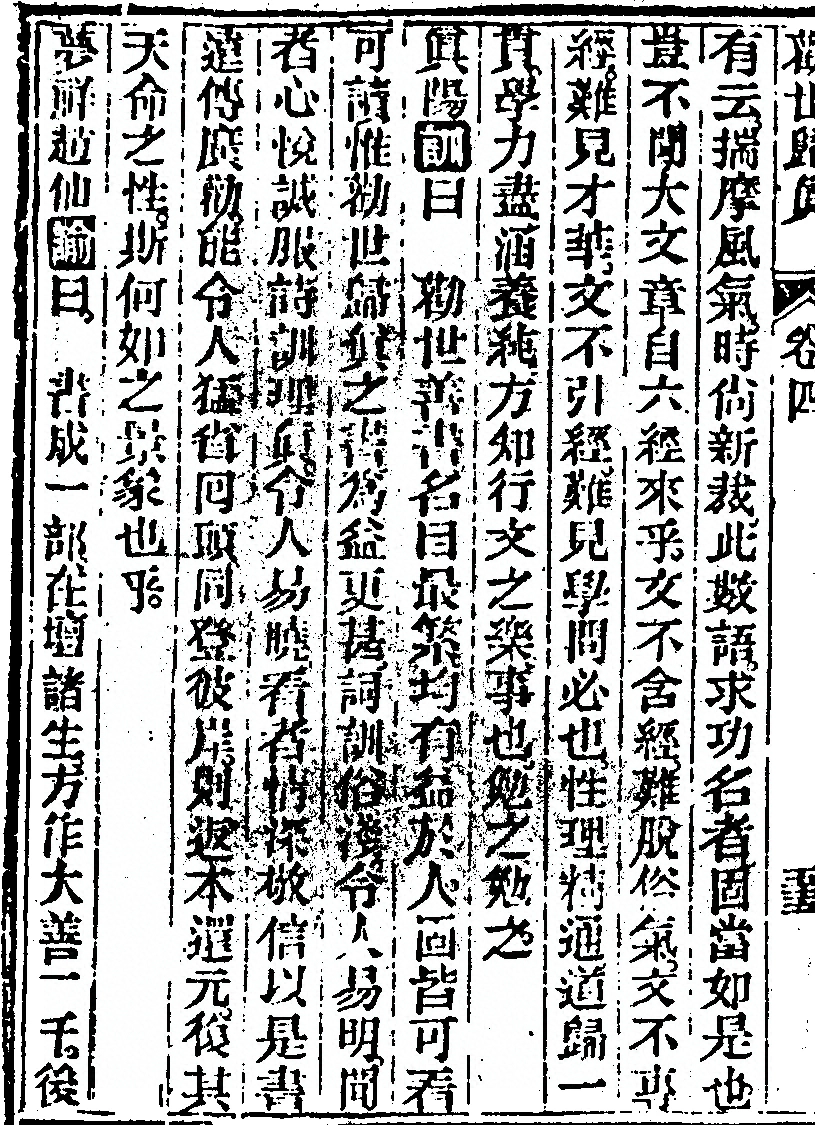 勸世歸真 卷四
有云。揣摩風氣。時尚新裁。此數語。求功名者。固當如是也
豈不聞大文章自六經來乎。文不含經。難脫俗氣。文不專
經。難見才華。文不引經。難見學問。必也。性理精通。道歸一
貫。學力盡。涵養純。方知行文之樂事也。勉之勉之。
真陽訓曰 勸世善書。名目最繁。均有益於人。一回皆可看
可讀。惟勸世歸真之書。為益更甚。詞訓俗淺。令人易明。聞
者心悅誠服。詩訓理真。令人易曉。看者情深敬信。以是書
遠傳廣勸。能令人猛省回頭。同登彼岸。則返本還元。復其
天命之性。斯何如之景象也乎。
夢醒趙仙諭曰。 書成一部。在壇諸生。方作大善一千。後